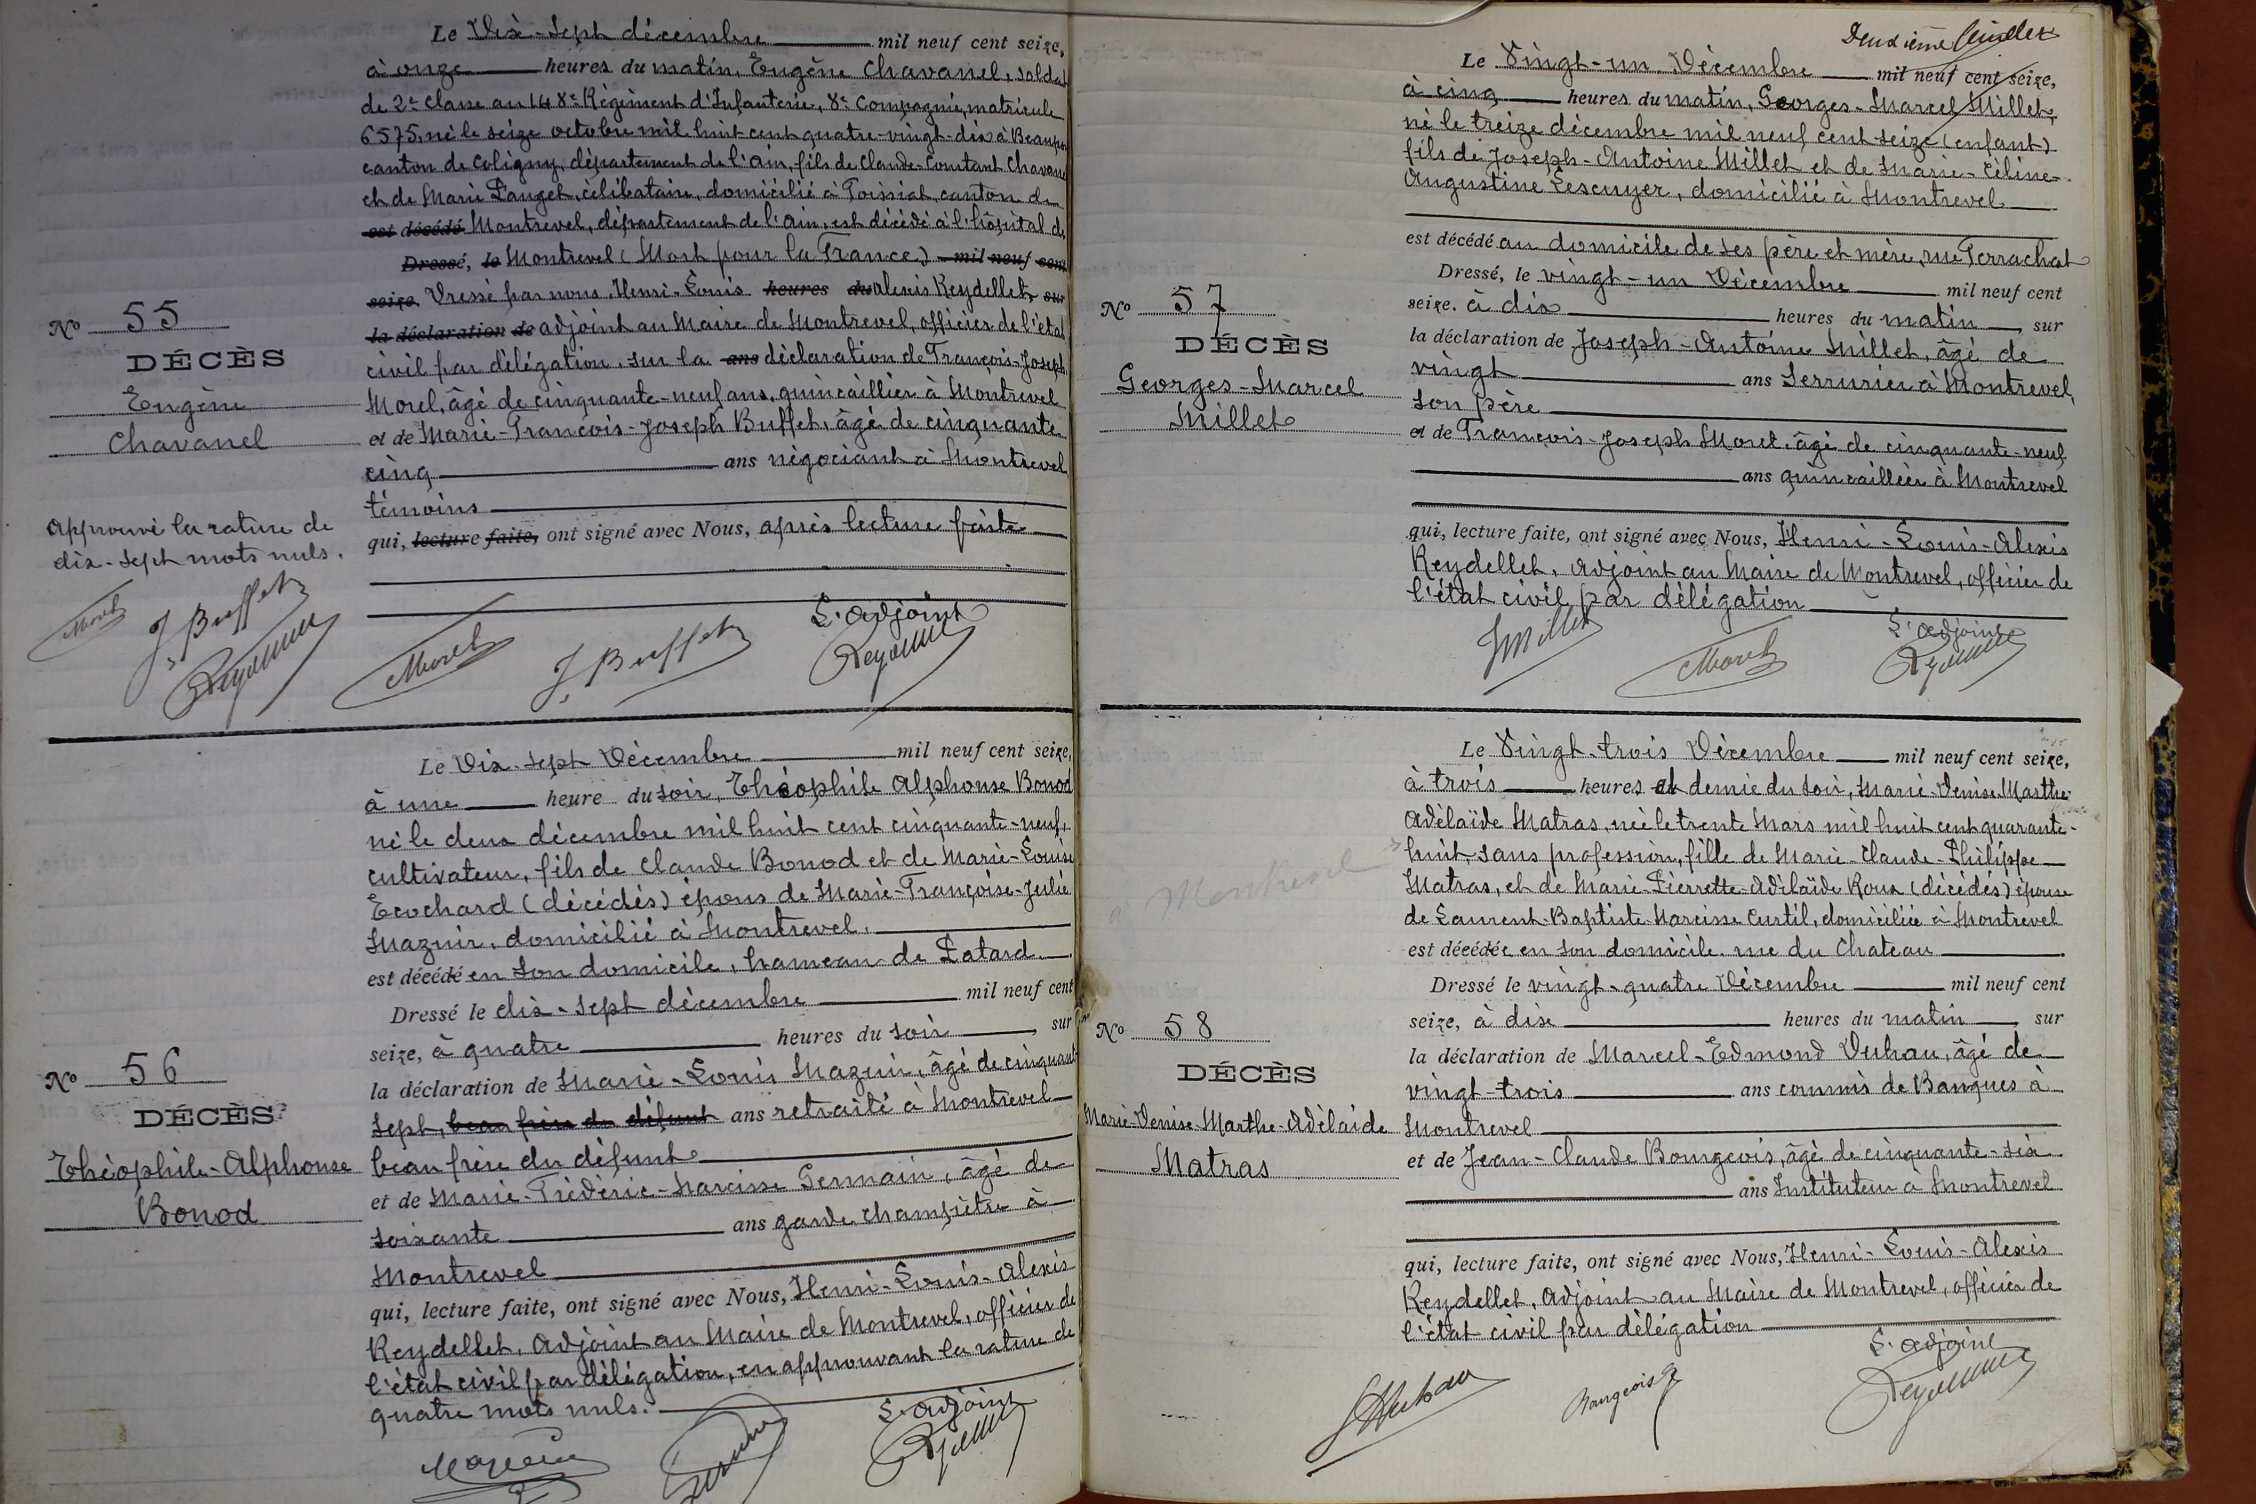 Le Dix-Sept décembre mil neuf cent seize,
à onze heures du matin, Eugène Chavanel, soldat
de 2e classe au 148e Régiment d'Infanterie, 8e Compagnie, matricule
6575, né le seize octobre mil huit cent quatre-vingt-dix à Beaupont
canton de Coligny, département de l'Ain, fils de Claude-Constant Chavanel
et de Marie Pauget, célibataire, domicilié à Foissiat, canton de
est décédé Montrevel, département de l'Ain, est décédé à l'hôpital de
Dressé, le Montrevel (Mort pour la France) mil neuf cent
seize. Dressé par nous, Henri-Louis heures du Alexis Reydellet, sur
la déclaration de adjoint au Maire de Montrevel, officier de l'état
civil par délégation, sur la ans déclaration de François-Joseph
Morel, âgé de cinquante-neuf ans, quincaillier à Montrevel
et de Marie-François-Joseph Buffet, âgé de cinquante
cinq ans négociant à Montrevel
témoins
qui, lecture faite, ont signé avec Nous, après lecture faite
L'adjoint
Morel
J. Buffet
Reydellet
No 55
DÉCÈS
Eugène
Chavanel
Approuvé la rature de
dix-sept mots nuls.
Morel
J. Buffet
Reydellet
Le Dix-Sept Décembre mil neuf cent seize,
à une heure du soir, Théophile Alphonse Bonod
né le deux décembre mil huit cent cinquante-neuf,
cultivateur, fils de Claude Bonod et de Marie-Louise
Ecochard (décédés) époux de Marie-Françoise-Julie
Mazuir, domicilié à Montrevel.
est décédé en son domicile, hameau de Patard
Dressé le dix-sept décembre mil neuf cent
seize, à quatre heures du soir, sur
la déclaration de Marie-Louis Mazuir, âgé de cinquante
sept, beau frère du défunt ans retraité à Montrevel
beau frère du défunt
et de Marie-Frédéric-Narcisse Germain, âgé de
soixante ans garde champêtre à
Montrevel
qui, lecture faite, ont signé avec Nous, Henri-Louis-Alexis
Reydellet, Adjoint au Maire de Montrevel, officier de
l'état civil par délégation, en approuvant la rature de
quatre mots nuls.
L'adjoint
Mazuir
Reydellet
No 56
DÉCÈS
Théophile-Alphonse
Bonod
Deuxième feuillet
Le Vingt-un Décembre mil neuf cent seize,
à cinq heures du matin, Georges-Marcel Millet,
né le treize décembre mil neuf cent seize (enfant)
fils de Joseph-Antoine Millet et de Marie-Céline-
Augustine Lescuyer, domicilié à Montrevel
est décédé au domicile de ses père et mère, rue Ferrachat
Dressé, le vingt-un Décembre mil neuf cent
seize. à dix heures du matin, sur
la déclaration de Joseph-Antoine Millet, âgé de
vingt ans Serrurier à Montrevel,
son père
et de François-Joseph Morel, âgé de cinquante-neuf
ans quincaillier à Montrevel
qui, lecture faite, ont signé avec Nous, Henri-Louis-Alexis
Reydellet, Adjoint au Maire de Montrevel, officier de
l'état civil par délégation
L'adjoint
J Millet
Morel
Reydellet
No 57
DÉCÈS
Georges-Marcel
Millet
Le Vingt-trois Décembre mil neuf cent seize,
à trois heures et demie du soir, Marie-Denise-Marthe-
Adélaïde Matras, née le trente Mars mil huit cent quarante-
huit, sans profession, fille de Marie-Claude-Philippe
Matras, et de Marie-Pierrette-Adélaïde Roux (décédés) épouse
de Laurent-Baptiste-Narcisse Curtil, domiciliée à Montrevel
est décédée en son domicile rue du Chateau
Dressé le vingt-quatre Décembre mil neuf cent
seize, à dix heures du matin, sur
la déclaration de Marcel-Edmond Duhau, âgé de
vingt-trois ans commis de Banques à
Montrevel
et de Jean-Claude Bourgeois, âgé de cinquante-six
ans Instituteur à Montrevel
qui, lecture faite, ont signé avec Nous, Henri-Louis-Alexis
Reydellet, Adjoint au Maire de Montrevel, officier de
l'état civil par délégation
L'adjoint
Bourgeois
Reydellet
à Montrevel
No 58
DÉCÈS
Marie-Denise-Marthe-Adélaïde
Matras